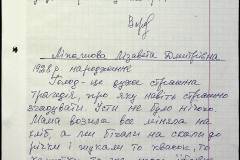 Мікашова Лізавета Дмитрівна
1928 р. народження
Голод – це дуже страшна
трагедія, про яку навіть страшно
згадувати. Їсти не було нічого.
Мама возила все міняла на
хліб, а ми бігали на скали до
річки і шукали то квасок, то